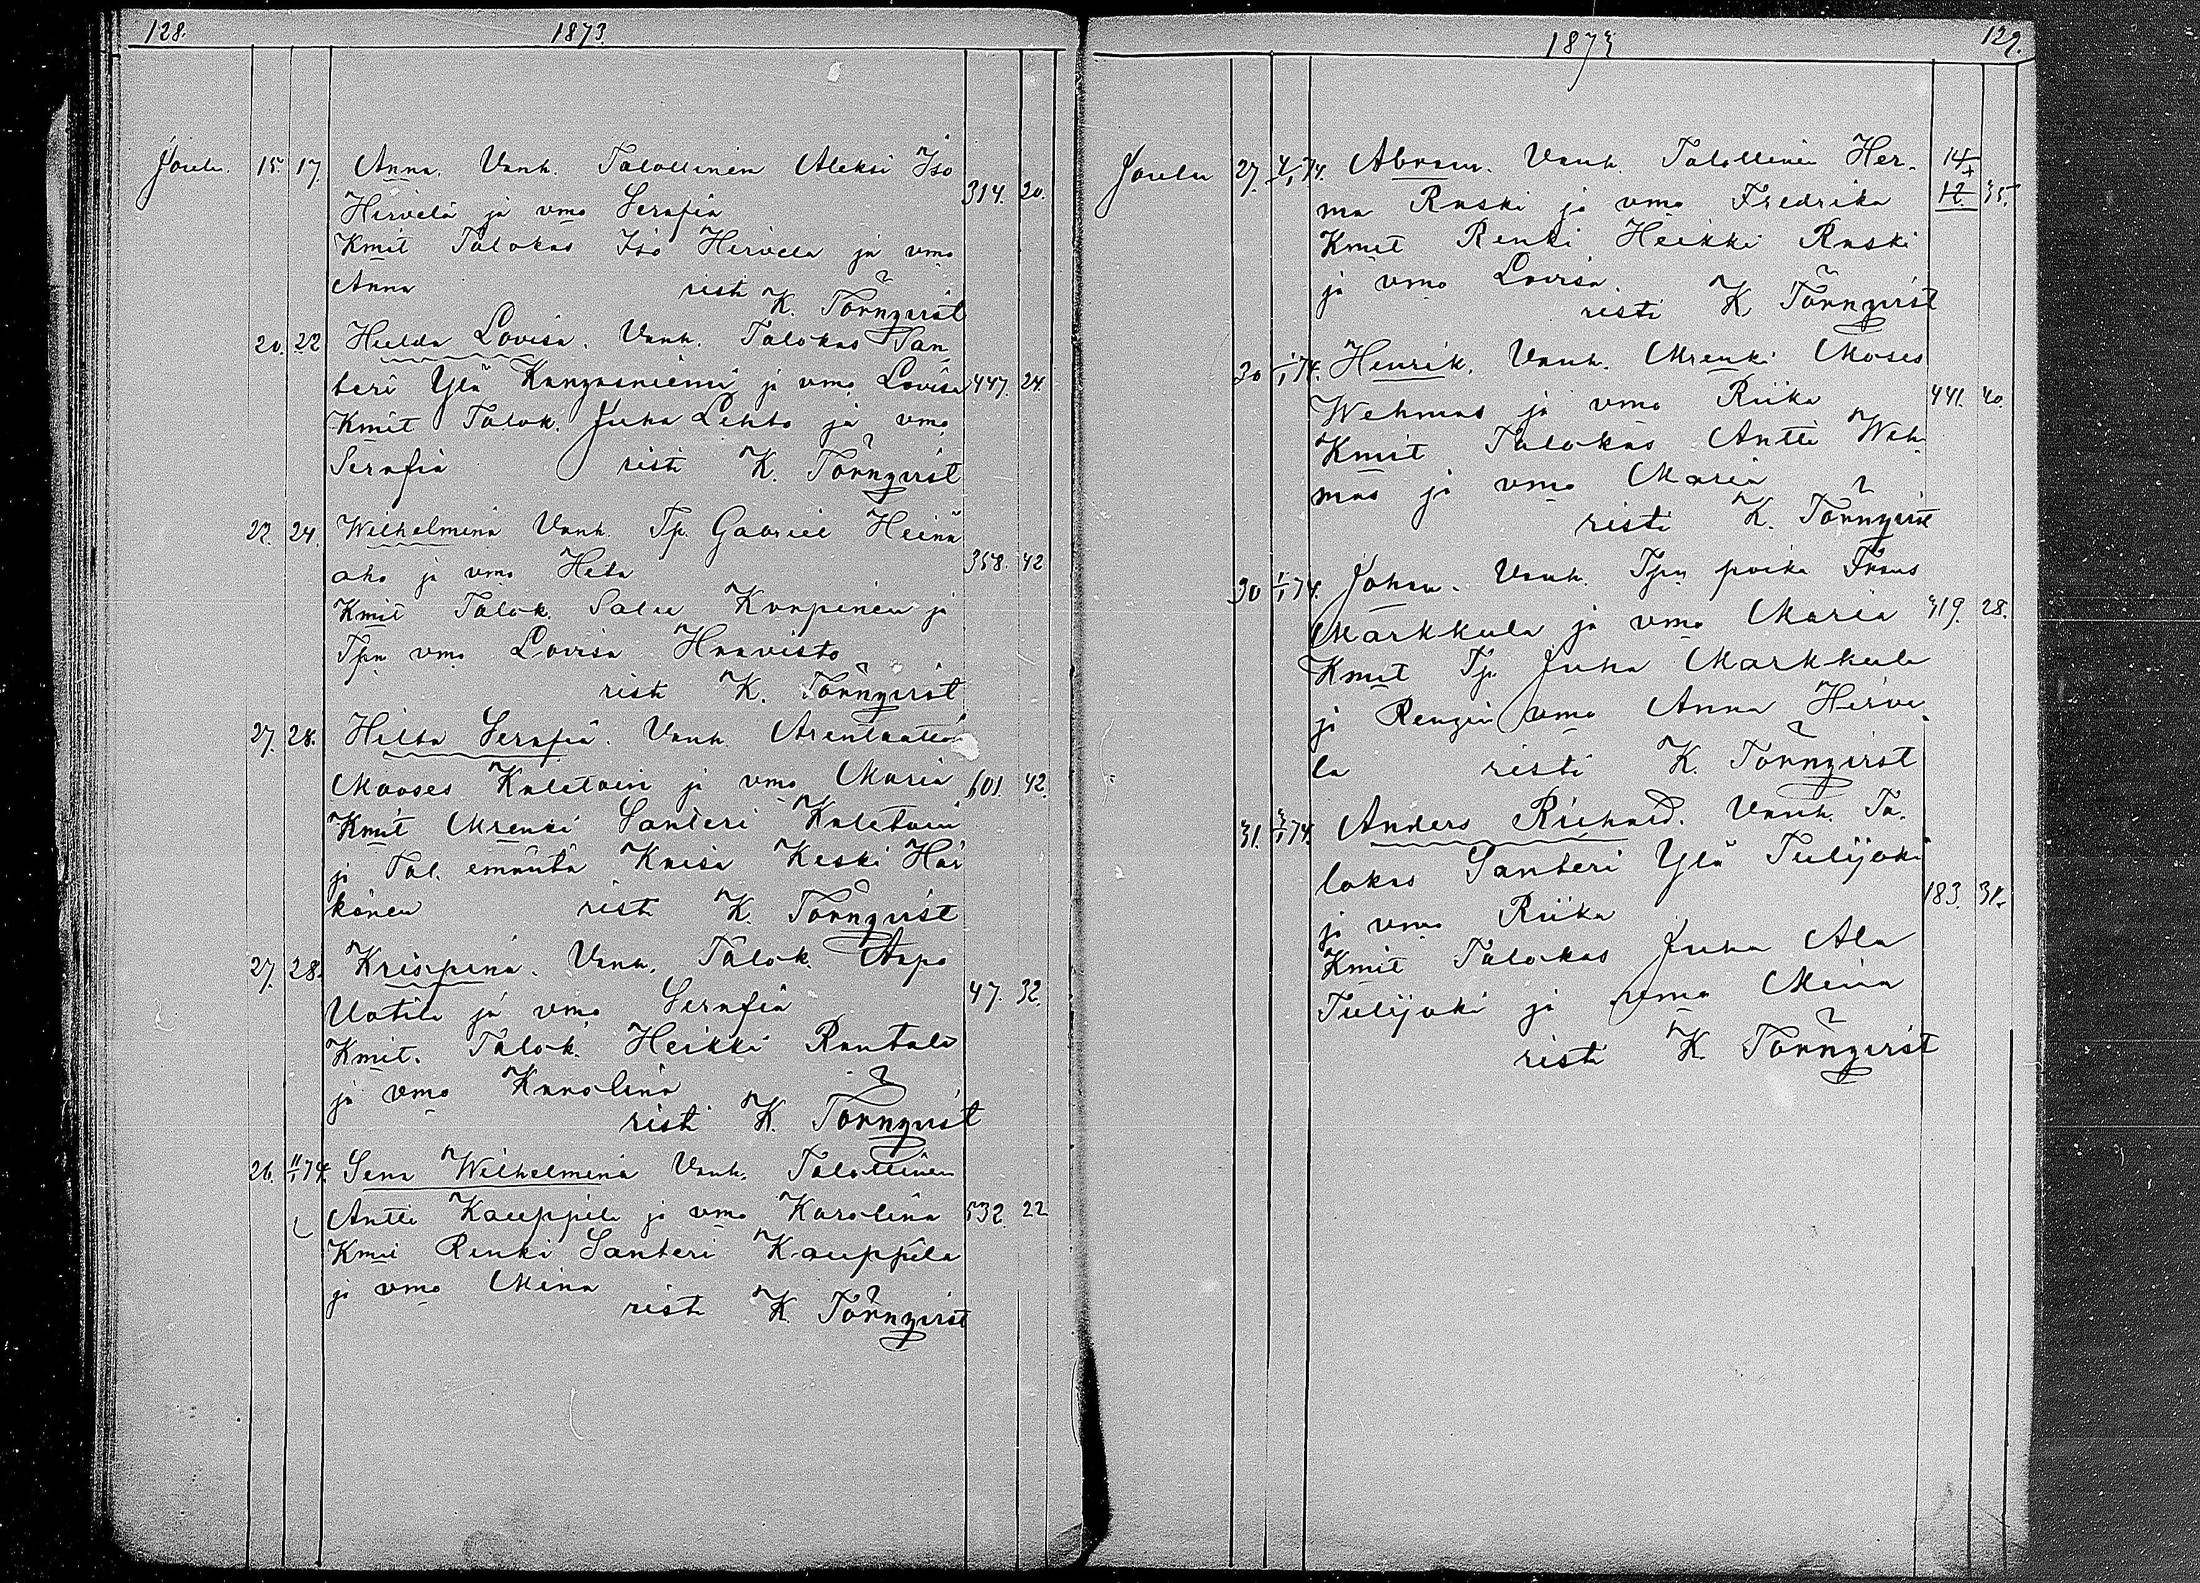 128. 1873.
Joulu. 15. 17. Anna. Vanh. Talollinen Aleksi Iso
Hirvelä ja vmo Serafia 314. 20.
Kmit Talokas Iso Hirvelä ja vmo
Anna risti K. Törnqvist
20. 22 Hulda Lovisa. Vanh. Talokas San
teri Ylä Kangasniemi ja vmo Lovisa 447. 24.
Kmit Talok. Juha Lehto ja vmo
Serafia risti K. Törnqvist
22. 24. Wilhelmina Vanh. Tp. Gabriel Heinä
aho ja vmo Heta 358. 42
Kmit Talok. Salu Karpinen ja
Tpn vmo Lovisa Haavisto
risti K. Törnqvist
27. 28. Hilta Serafia. Vanh. Arentaatti
Mooses Kaletoin ja vmo Maria 601. 42.
Kmit Mrenki Santeri Kaletoin
ja Tal. emäntä Kaisa Keski Här
könen risti K. Törnqvist
27. 28. Krispina. Vanh. Talok. Aapo
Uotila ja vmo Serafia 47. 32.
Kmit. Talok. Heikki Rantala
ja vmo Karolina
risti K. Törnqvist
26. 11/1 74. Sena Wilhelmina Vanh. Talollinen
Antti Kauppila ja vmo Karolina 532. 22
Kmit Renki Santeri Kauppila
ja vmo Mina
risti K. Törnqvist
1873 129.
Joulu 27. 4/1 74. Abram. Vanh. Talollinen Her- 14
ma Raski ja vmo Fredrika 12. 35.
Kmit Renki Heikki Raski
ja vmo Lovisa
risti K. Törnqvist
30 1/1 74. Henrik. Vanh. Mrenki Moses
Wehmas ja vmo Riika 441. 40.
Kmit Talokas Antti Weh
mas ja vmo Maria
risti K. Törnqvist
30 1/1 74. Johan. Vanh. Tpn poika Frans
Markkula ja vmo Maria 419. 28.
Kmit Tp. Juha Markkula
ja Rengin vmo Anna Hirve
la risti K. Törnqvist
31. 3/1 74. Anders Richard. Vanh. Ta.
lokas Santeri Ylä Tulijoki
ja vmo Riika 183. 31.
Kmit Talokas Juha Ala
Tulijoki ja vmo Miina
risti K. Törnqvist